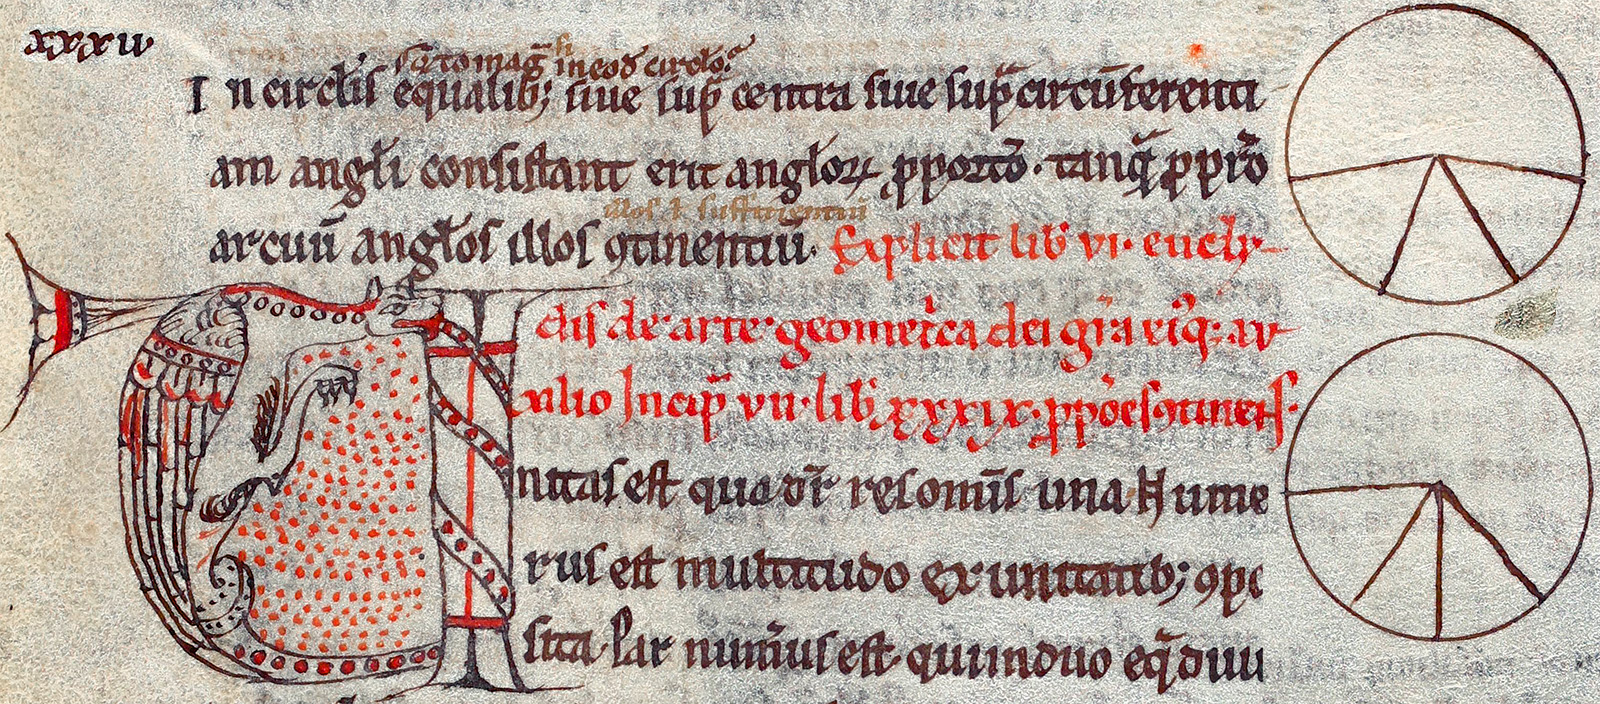 xxxii
I n circlis equalib; siue sup centra siue sup circūferenti
am angli consistant erit anglorꝝ ꝓportō. tanq̃ ꝓpr̃o
illos .i. sufficientiū
arcuū anglos illos ꝯtinentiū. Explicit lib̃ vi. eucly
dis de arte geomet̾ca dei gr̃a eiusq; au
xilio Incip̃ vii. lib̃ xxxix. ꝓpōes ꝯtinens.
Unitas est qua dr̃ res om̃is una Nume
rus est multitudo ex unitatib; ꝯpo
sita. Par num̃us est qui in duo eq̃ diui